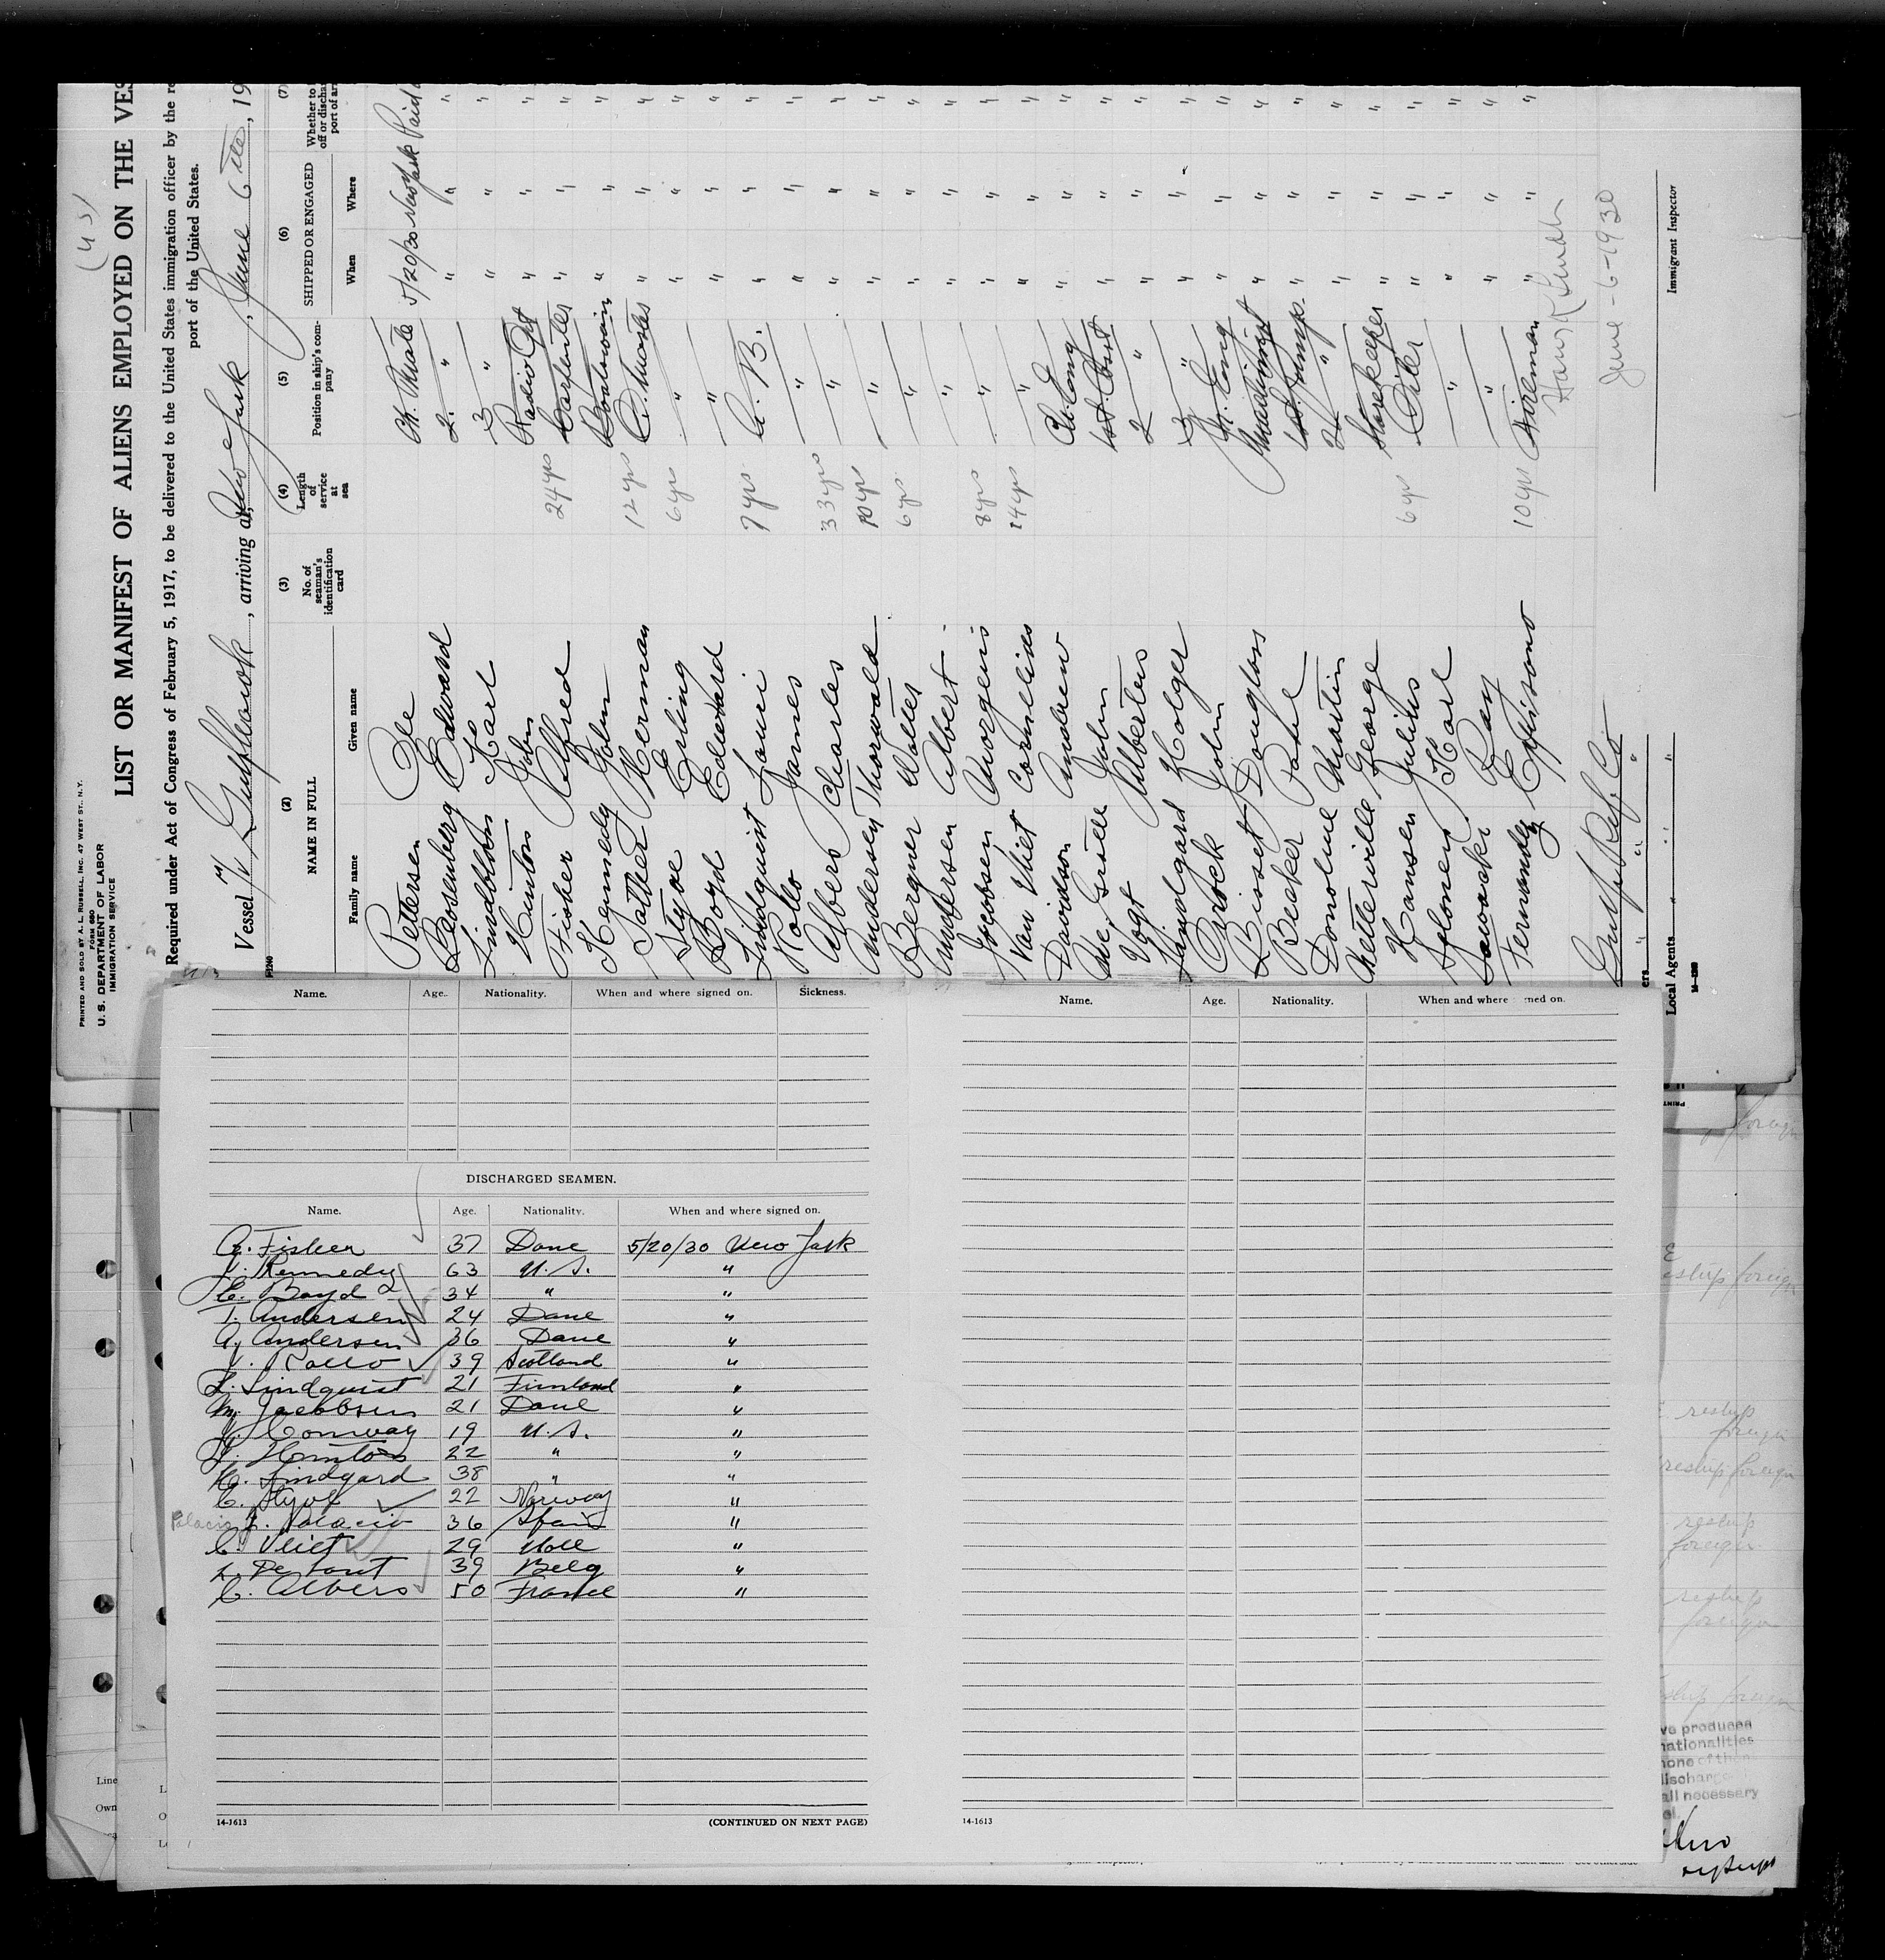 (45)
PRINTED AND SOLD BY A. L. RUSSELL, INC. 47 WEST ST., N.Y.
FORM 680
U. S. DEPARTMENT OF LABOR
IMMIGRATION SERVICE
LIST OR MANIFEST OF ALIENS EMPLOYED ON THE VES
Required under Act of Congress of February 5, 1917, to be delivered to the United States immigration officer by the re
port of the United States.
Vessel Gulfhawk, arriving at New York, June 6th, 19
(2) (3) (4) (5) (6) (7)
NAME IN FULL No. of seaman's identification card Length of service at sea Position in ship's company SHIPPED OR ENGAGED Whether to
off or discha
port of arr
Family name Given name When Where
Pettersen Ole Ch. Mate 5/20/30 New York Paid
Rosenberg Edward 2. " " " "
Lindblom Karl 3 " " " "
Hinton John Radio Opt " " "
Fisher Alfred 24 yrs Carpenter " " "
Kennedy John Boatswain " " "
Sather Herman 12 yrs " " "
Styve Erling 6 yrs " " " "
Boyd Edward " " " "
Lindquist Lauri 7 yrs A. B. " " "
Rollo James " " " "
Albers Charles 33 yrs " " " "
Andersen Thorwald 10 yrs " " " "
Bergner Walter 6 yrs " " " "
Andersen Albert " " " "
Jacobsen Morgens 8 yrs " " " "
Van Vliet Cornelius 14 yrs " " " "
Davidson Andrew Ch. Eng " " "
John 1st Asst " " "
Vogt Albertus 2 " " " "
Lindgard Holger 3 " " " "
Brock John Jr. Eng " " "
Bisset Douglas Machinist " " "
Becker Paul 1st Pump. " " "
Donohue Martin 2 " " " "
Ketterville George Storekeeper " " "
Hansen Julius 6 yrs Oiler " " "
Solonen Karl " " " "
Sawacki Ray " " " "
Fernandez 10 yrs Fireman " " "
June-6-1930
Gulf Ref. Co
ers " " " "
Local Agents " " "
Immigrant Inspector
Name. Age. Nationality. When and where signed on. Sickness.
DISCHARGED SEAMEN.
Name. Age. Nationality. When and where signed on.
A. Fisher 37 Dane 5/20/30 New York
J. Kennedy 63 U. S. "
E. Boyd 34 " "
T. Andersen 24 Dane "
A. Andersen 36 Dane "
J. Rollo 39 Scotland "
L. Lindquist 21 Finland "
M. Jacobsen 21 Dane "
J. Conway 19 U. S. "
J. Hinton 22 " "
H. Lindgard 38 " "
E. Styve 22 Norway "
Palacio J. Palacio 36 Spain "
C. Vliet 29 Holl "
39 Belg "
C. Albers 50 France "
14-1613 (CONTINUED ON NEXT PAGE)
Name. Age. Nationality. When and where ned on.
14-1613
foreign
reship foreign
reship
foreign
reship foreign
reship
foreign
reship
foreign
ship foreign
ve produced
nationalities
none of the
discharg
all necessary
el.
Line
Own